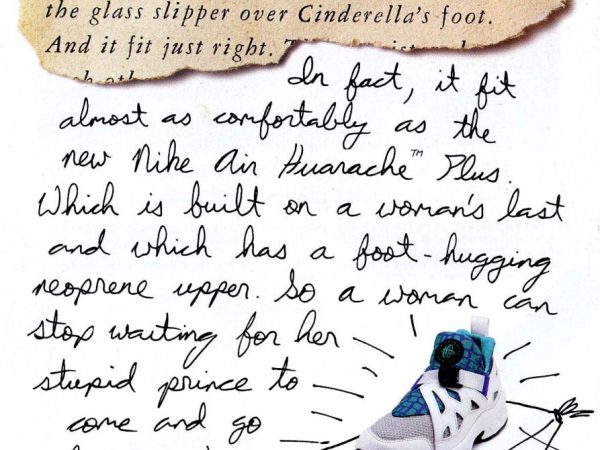 the glass slipper over Cinderella's foot.
And it fit just right.
In fact, it fit
almost as comfortably as the
new Nike Air Huarache™ Plus.
Which is built on a woman's last
and which has a foot-hugging
neoprene upper. So a woman can
stop waiting for her
stupid prince to
come and go